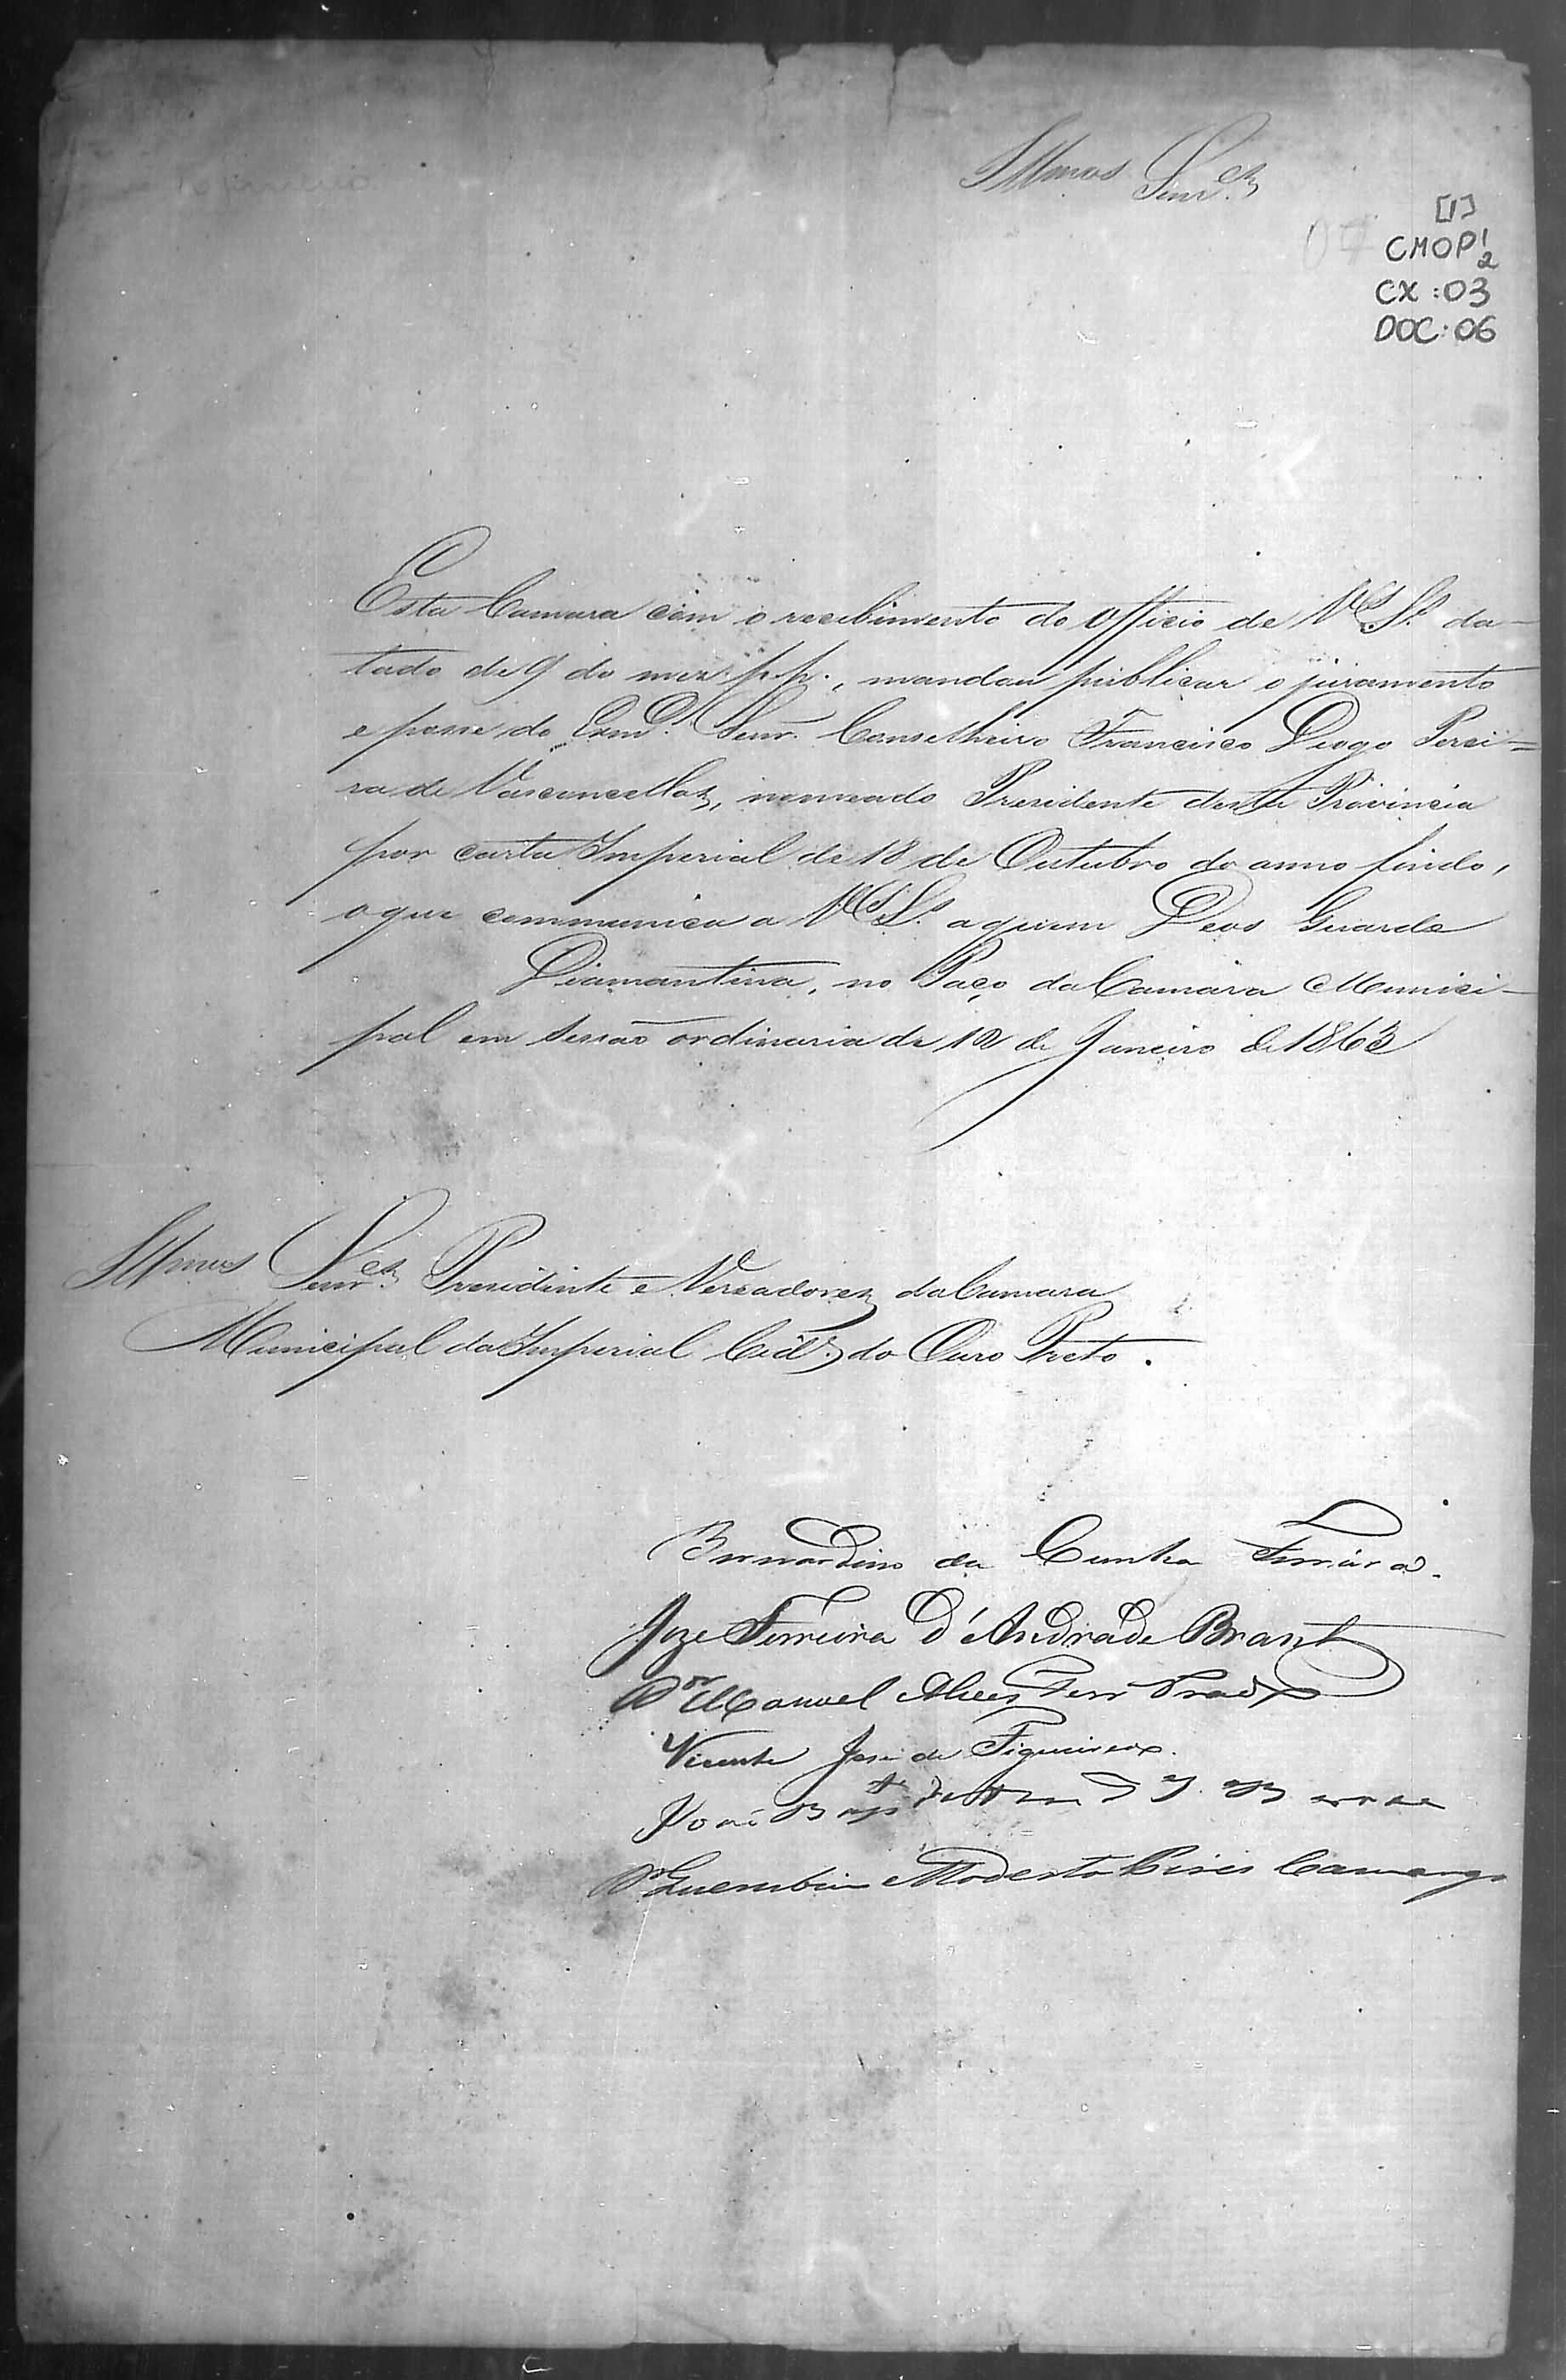 Illmos Senr.es
[1]
CMOP 1/2
CX:03
DOC:06
Esta Camara com o recebimento do officio de V.Sas. da-
tado de 9 do mez p.p., mandou publicar o juramento
e posse do Exmo. Senr. Conselheiro Francisco Diogo Perei=
ra de Vasconcellos, nomeado Presidente desta Provincia
por carta Imperial de 18 de Outubro do anno findo,
o que communica a V.Sas. a quem Deos Guarde
Diamantina, no Paço da Camara Munici-
pal em sessão ordinaria de 12 de Janeiro de 1863
Illmos Senr.es Presidente e Vereadores da Camara
Municipal da Imperial Cide. do Ouro Preto.
Bernardino da Cunha Ferreira.
Joze Ferreira d'Andrade Brant
Dor Manoel Alves Ferr Prado
Vicente José de Figueiredo.
João Bapte de
Dor Querubim Modesto Pires Camargo